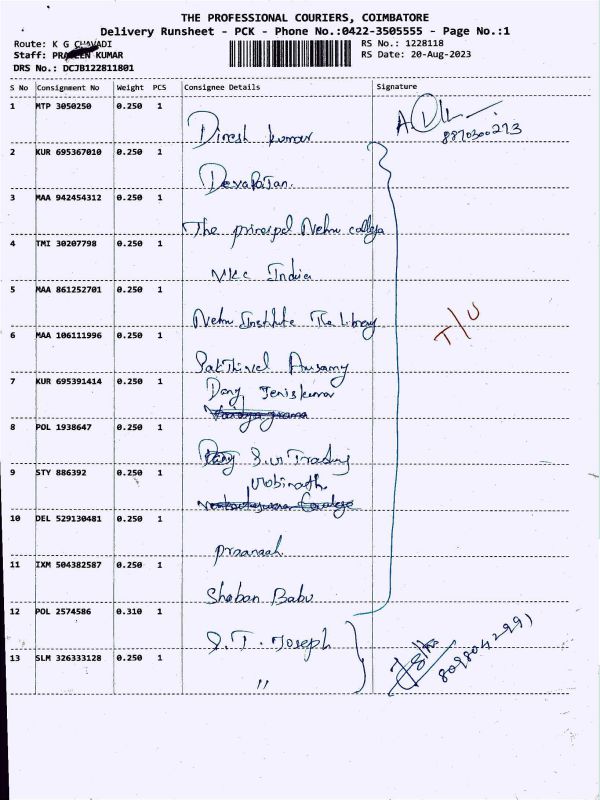 THE PROFESSIONAL COURIERS, COIMBATORE
Delivery Runsheet - PCK - Phone No.:0422-3505555 - Page No.:1
Route: K G CHAVADI
RS No.: 1228118
Staff: PRAVEEN KUMAR
RS Date: 20-Aug-2023
DRS No.: DCJB122811801
S No Consignment No Weight PCS Consignee Details Signature
1 MTP 3050250 0.250 1 Dinesh kumar
8870300273
2 KUR 695367010 0.250 1
3 MAA 942454312 0.250 1 The principal Nehru college
4 TMI 30207798 0.250 1 VKC India
5 MAA 861252701 0.250 1 Nehru Institute The Library
T/U
6 MAA 106111996 0.250 1 Sakthivel
7 KUR 695391414 0.250 1 Jeniskumar
8 POL 1938647 0.250 1 Trading
9 STY 886392 0.250 1
10 DEL 529130481 0.250 1
11 IXM 504382587 0.250 1 Shaban Babu
12 POL 2574586 0.310 1 S.T. Joseph
8098042991
13 SLM 326333128 0.250 1 "